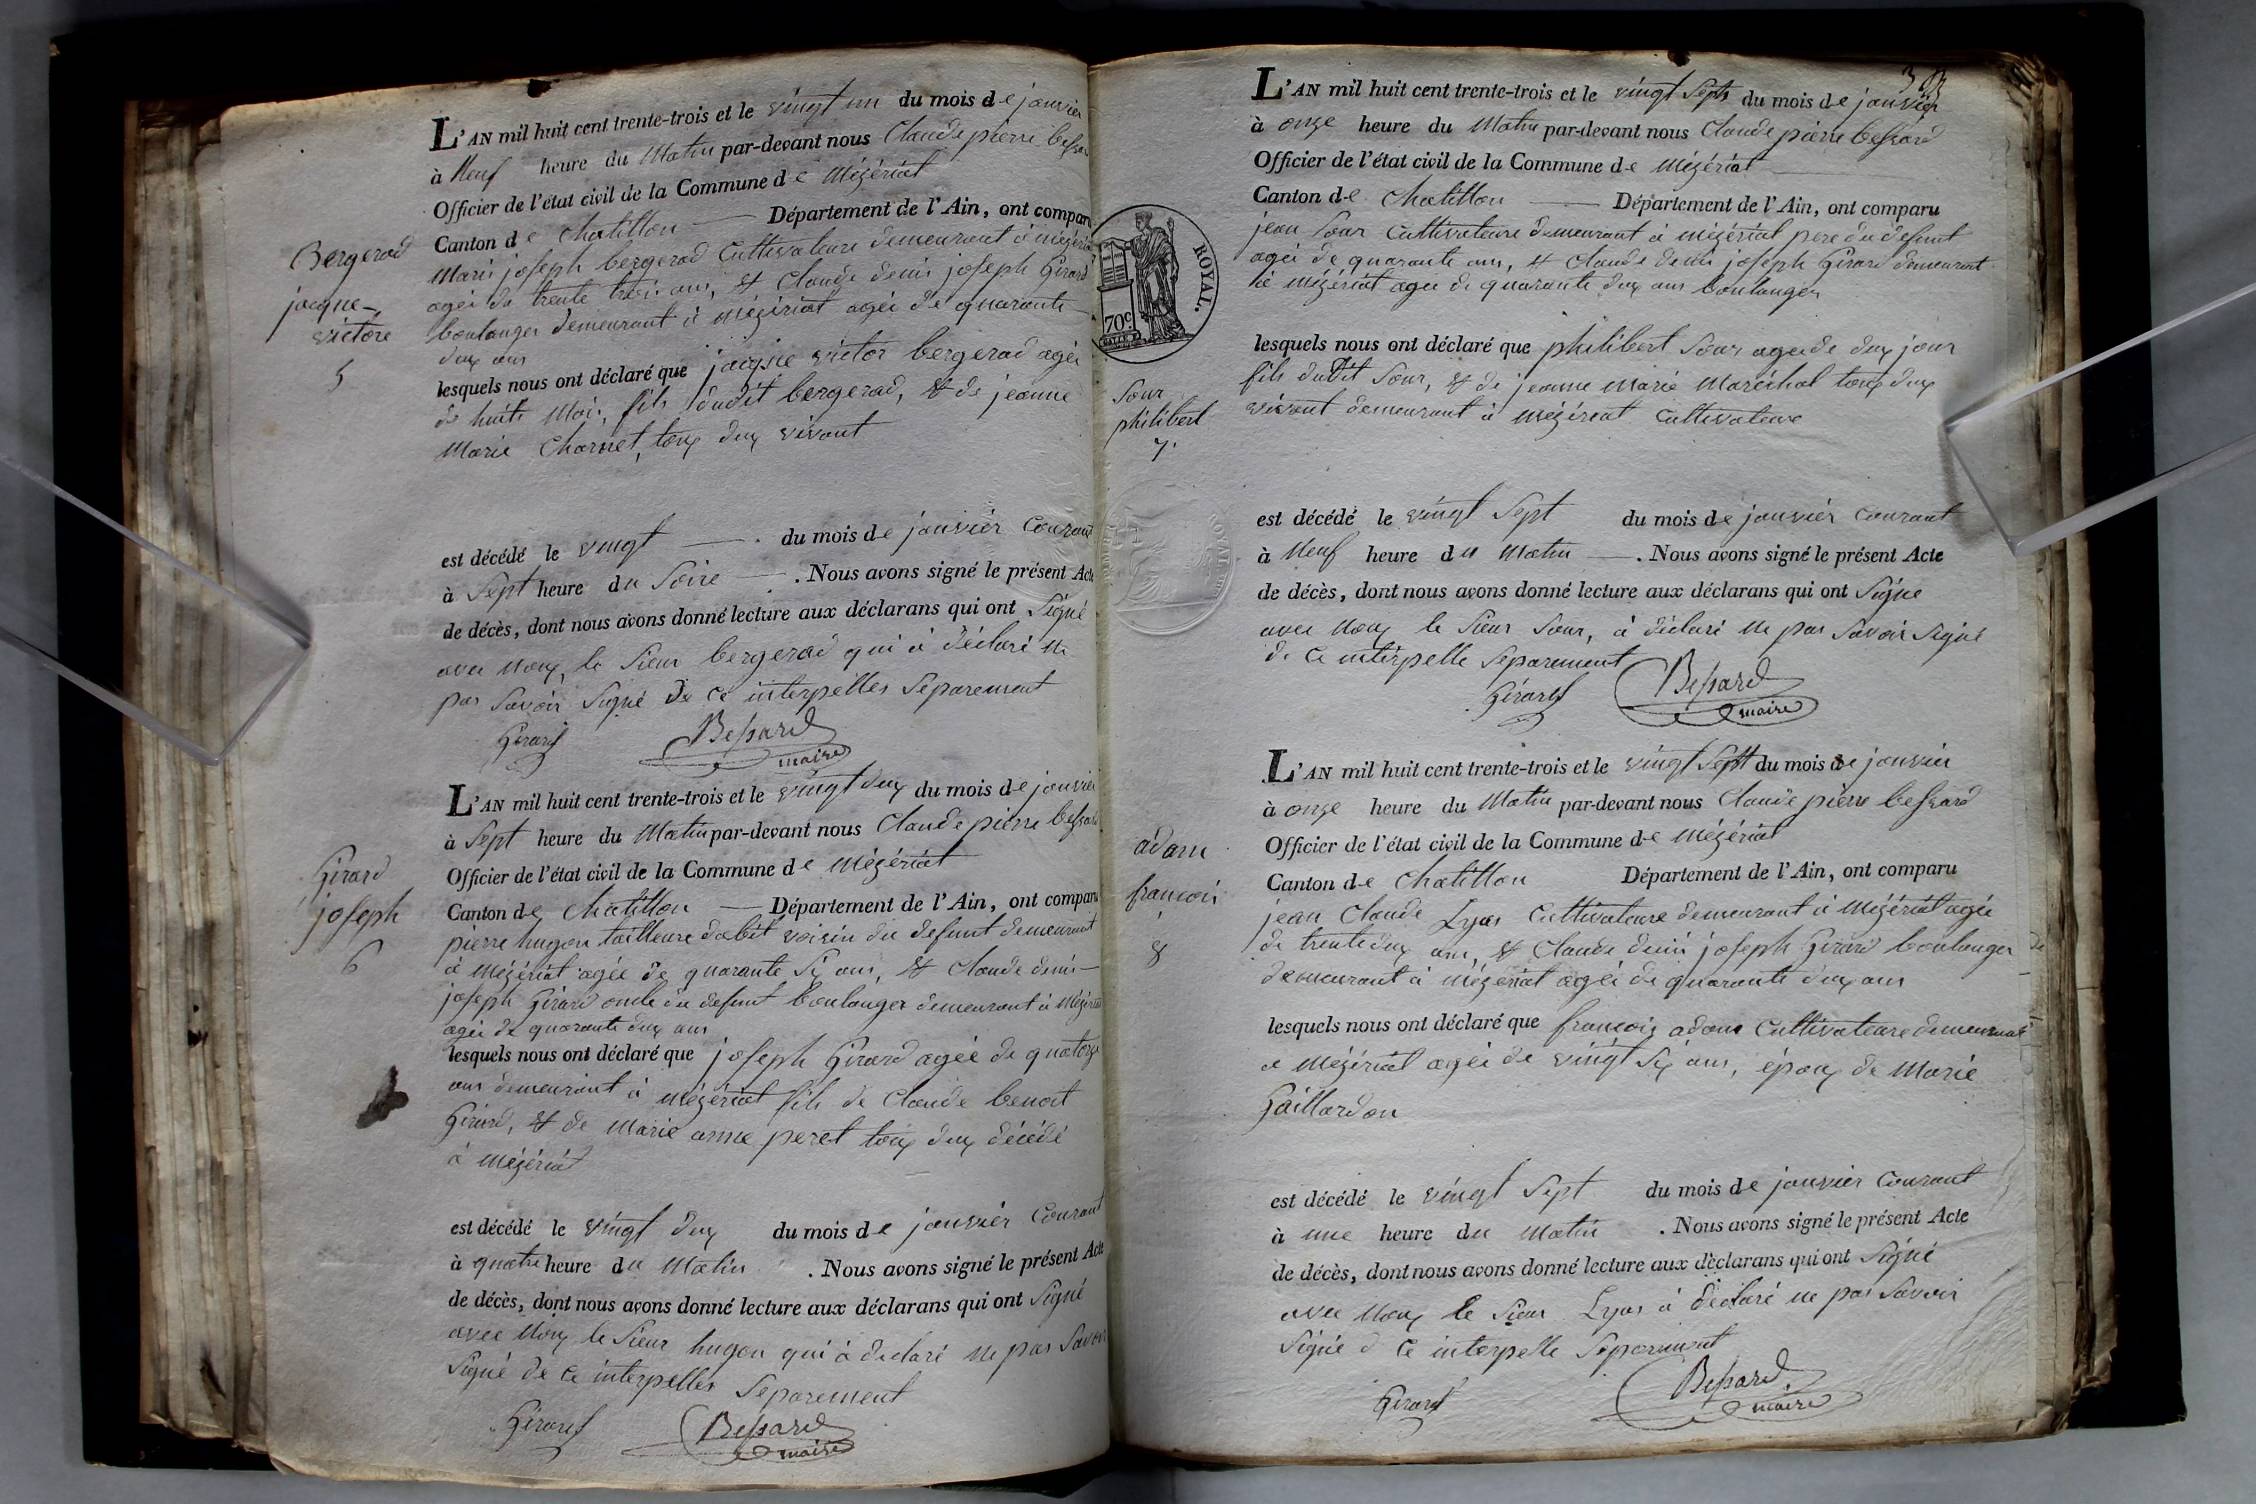 L'AN mil huit cent trente-trois et le vingt un du mois de janvier
à Neuf heure du Matin par-devant nous Claude pierre bessar
Officier de l'état civil de la Commune de Mézériat
Canton de Chatillon Département de l'Ain, ont comparu
Marie joseph bergerad Cultivateure demeurant à mézériat
agée de trente trois ans, & Claude denis joseph Girard
boulanger demeurant à mézériat agée de quarante
dux ans
Bergerad
jacque-
victore
5
lesquels nous ont déclaré que jacque victor bergerad agée
de huite Mois, fils dudit bergerad, & de jeanne
Marie Charnet, toux dux vivant
est décédé le vingt du mois de janvier Courant
à Sept heure du Soire . Nous avons signé le présent Acte
de décès, dont nous avons donné lecture aux déclarans qui ont Signé
avec Noux, le Sieur bergerad qui à déclaré ne
pas Savoir Signé de ce interpelles Séparement
Girard Bessard
maire
L'AN mil huit cent trente-trois et le vingt dux du mois de janvier
à Sept heure du Matin par-devant nous Claude pierre bessard
Officier de l'état civil de la Commune de Mézériat
Canton de Chatillon Département de l'Ain, ont comparu
pierre hugon tailleure dabit voisin du defunt demeurant
à mézériat agée de quarante Six ans, & Claude denis
joseph Girard oncle du defunt boulanger demeurant à Mézériat
agée de quarante dux ans
Girard
joseph
6
lesquels nous ont déclaré que joseph Girard agée de quatorze
ans demeurant à mézériat fils de Claude benoit
Girard, & de Marie anne peret toux dux décédé
à mézériat
est décédé le vingt dux du mois de janvier Courant
à quatre heure du Matin . Nous avons signé le présent Acte
de décès, dont nous avons donné lecture aux déclarans qui ont Signé
avec Noux le Sieur hugon qui à declaré ne pas Savoir
Signé de ce interpelles Séparement
Girard Bessard
maire
L'AN mil huit cent trente-trois et le vingt Sept du mois de janvier
à onze heure du Matin par-devant nous Claude pierre bessard
Officier de l'état civil de la Commune de Mézériat
Canton de Chatillon Département de l'Ain, ont comparu
jean Sour Cultivateure demeurant à mézériat pere du defunt
agée de quarante ans, & Claude denis joseph Girard demeurant
à mézériat agée de quarante dux ans boulanger
ROYAL.
70c.
Sour
philibert
7.
lesquels nous ont déclaré que philibert Sour agée de dux jour
fils dudit Sour, & de jeanne Marie Maréchal toux dux
vivant demeurant à mézériat Cultivateure
est décédé le vingt Sept du mois de janvier Courant
à Neuf heure du Matin . Nous avons signé le présent Acte
de décès, dont nous avons donné lecture aux déclarans qui ont Signé
avec Noux le Sieur Sour, à déclaré ne pas Savoir Signé
de ce interpelle Séparement
Girard Bessard
maire
L'AN mil huit cent trente-trois et le vingt Sept du mois de janvier
à onze heure du Matin par-devant nous Claude pierre bessard
Officier de l'état civil de la Commune de Mézériat
Canton de Chatillon Département de l'Ain, ont comparu
jean Claude Lyas Cultivateure demeurant à Mézériat agée
de trente dux ans, & Claude denis joseph Girard boulanger
demeurant à mézériat agée de quarante dux ans
adam
francois
8
lesquels nous ont déclaré que francois adam Cultivateure demeurant
a Mézériat agée de vingt Six ans, époux de Marie
Gaillardon
est décédé le vingt Sept du mois de janvier Courant
à une heure du Matin . Nous avons signé le présent Acte
de décès, dont nous avons donné lecture aux déclarans qui ont Signé
avec Noux le Sieur Lyas à déclaré ne pas Savoir
Signé d ce interpelle Séparement
Girard Bessard
maire